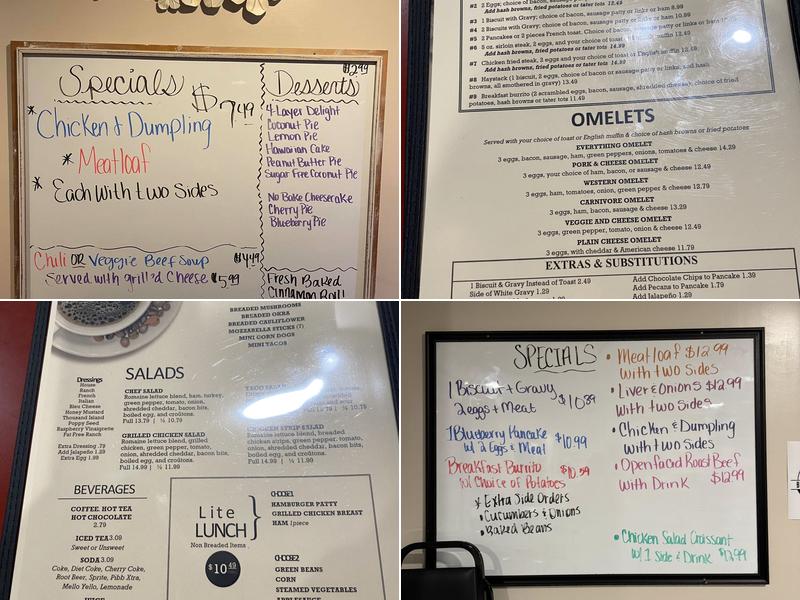 Specials
$7.49
* Chicken & Dumpling
* Meatloaf
* Each With two Sides
Chili OR Veggie Beef Soup $4.49
Served with grill'd Cheese $5.99
$2.99
Desserts
4-Layer Delight
Coconut Pie
Lemon Pie
Hawaiian Cake
Peanut Butter Pie
Sugar Free Coconut Pie
No Bake Cheesecake
Cherry Pie
Blueberry Pie
Fresh Baked
Cinnamon Roll
#2 2 Eggs, choice of bacon, sausage patty
Add hash browns, fried potatoes or tater tots 12.49
#3 1 Biscuit with Gravy; choice of bacon, sausage patty or links or ham 8.99
#4 2 Biscuits with Gravy; choice of bacon, sausage patty or links or ham 10.99
#5 2 Pancakes or 2 pieces French Toast. Choice of bacon, sausage patty or links or
#6 5 oz. sirloin steak, 2 eggs, and your choice of toast muffin 12.49
Add hash browns, fried potatoes or tater tots 14.99
#7 Chicken fried steak, 2 eggs and your choice of toast or English muffin 12.49
Add hash browns, fried potatoes or tater tots 14.99
#8 Haystack (1 biscuit, 2 eggs, choice of bacon or sausage patty or links, and hash
browns, all smothered in gravy) 13.49
#9 Breakfast burrito (2 scrambled eggs, bacon, sausage, shredded cheese), choice of fried
potatoes, hash browns or tater tots 11.49
OMELETS
Served with your choice of toast or English muffin & choice of hash browns or fried potatoes
EVERYTHING OMELET
3 eggs, bacon, sausage, ham, green peppers, onions, tomatoes & cheese 14.29
PORK & CHEESE OMELET
3 eggs, your choice of ham, bacon, or sausage & cheese 12.49
WESTERN OMELET
3 eggs, ham, tomatoes, onion, green pepper & cheese 12.79
CARNIVORE OMELET
3 eggs, ham, bacon, sausage & cheese 13.29
VEGGIE AND CHEESE OMELET
3 eggs, green pepper, tomato, onion & cheese 12.49
PLAIN CHEESE OMELET
3 eggs, with cheddar & American cheese 11.79
EXTRAS & SUBSTITUTIONS
1 Biscuit & Gravy Instead of Toast 2.49
Side of White Gravy 1.29
Add Chocolate Chips to Pancake 1.39
Add Pecans to Pancake 1.79
Add Jalapeño 1.29
BREADED MUSHROOMS
BREADED OKRA
BREADED CAULIFLOWER
MOZZARELLA STICKS (7)
MINI CORN DOGS
MINI TACOS
SALADS
Dressings
House
Ranch
French
Italian
Bleu Cheese
Honey Mustard
Thousand Island
Poppy Seed
Raspberry Vinaigrette
Fat Free Ranch
Extra Dressing .79
Add Jalapeño 1.29
Extra Egg 1.99
CHEF SALAD
Romaine lettuce blend, ham, turkey,
green pepper, tomato, onion,
shredded cheddar, bacon bits,
boiled egg, and croûtons.
Full 13.79 | ½ 10.79
TACO SALAD
½ 10.79
GRILLED CHICKEN SALAD
Romaine lettuce blend, grilled
chicken, green pepper, tomato,
onion, shredded cheddar, bacon
bits, boiled egg and croûtons.
Full 14.99 | ½ 11.99
CHICKEN STRIP SALAD
Romaine lettuce blend, breaded
chicken strips, green pepper, tomato,
onion, shredded cheddar, bacon bits,
boiled egg, and croûtons.
Full 14.99 | ½ 11.99
BEVERAGES
COFFEE, HOT TEA
HOT CHOCOLATE
2.79
ICED TEA 3.09
Sweet or Unsweet
SODA 3.09
Coke, Diet Coke, Cherry Coke,
Root Beer, Sprite, Pibb Xtra,
Mello Yello, Lemonade
JUICE
Lite
LUNCH
Non Breaded Items
$10.49
CHOOSE 1
HAMBURGER PATTY
GRILLED CHICKEN BREAST
HAM 1piece
CHOOSE 2
GREEN BEANS
CORN
STEAMED VEGETABLES
APPLESAUCE
SPECIALS
1 Biscuit + Gravy
2 eggs + Meat $10.39
1 Blueberry Pancake
w/ 2 Eggs & Meat $10.99
Breakfast Burrito
w/ Choice of Potatoes $10.59
* Extra Side Orders
• Cucumbers & Onions
• Baked Beans
• Meatloaf $12.99
with two Sides
• Liver & Onions $12.99
with two Sides
• Chicken & Dumpling
with two Sides
• Openfaced Roast Beef
with Drink $12.99
• Chicken Salad Croissant
w/ 1 Side & Drink $12.99